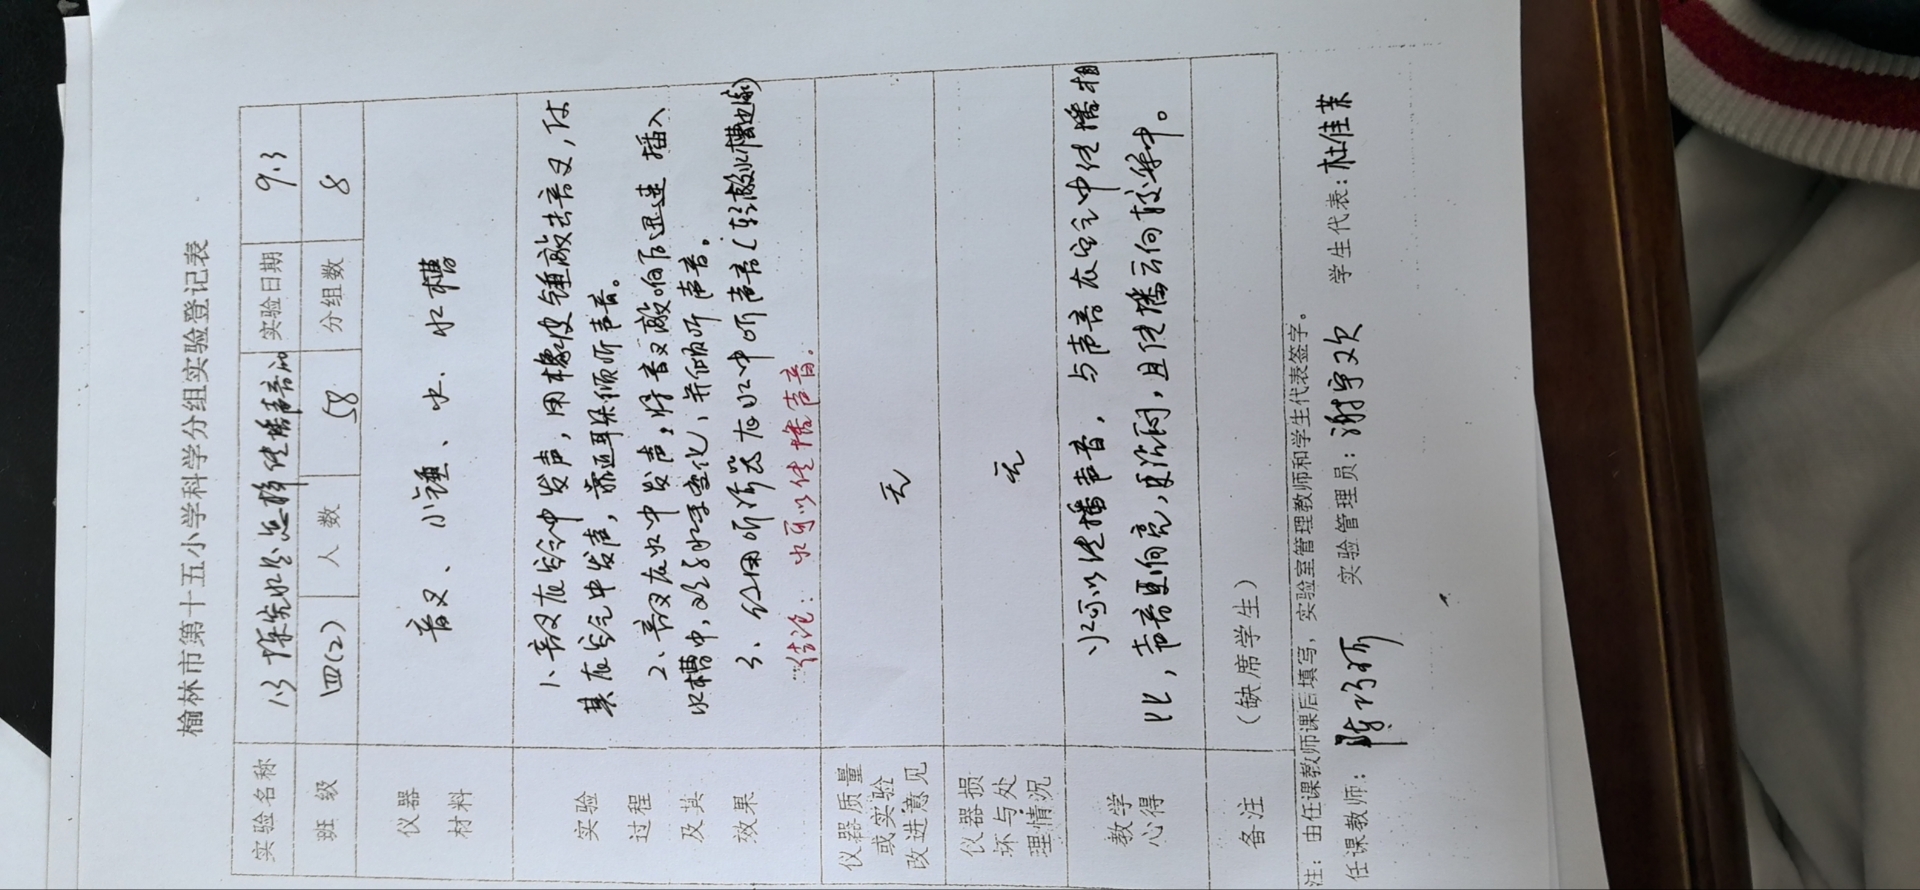 榆林市第十五小学科学分组实验登记表
实验名称 1.3 探究水是怎样传播声音的 实验日期 9.3
班级 四(2) 人数 58 分组数 8
仪器材料 音叉、小锤、水、水槽
实验过程及其效果
1、音叉在空气中发声,用橡皮锤敲击音叉,使
其在空气中发声,靠近耳朵倾听声音。
2、音叉在水中发声:将音叉敲响后迅速插入
水槽中,观察水面变化,并倾听声音。
3、用听诊器在水中听声音(轻敲水槽边缘)
结论:水可以传播声音。
仪器质量或实验改进意见 无
仪器损坏与处理情况 无
教学心得
水可以传播声音,与声音在空气中传播相
比,声音更响亮,更沉闷,且传播方向较集中。
备注 (缺席学生)
注:由任课教师课后填写,实验室管理教师和学生代表签字。
任课教师: 实验管理员:谢宇欢 学生代表:杜佳芙